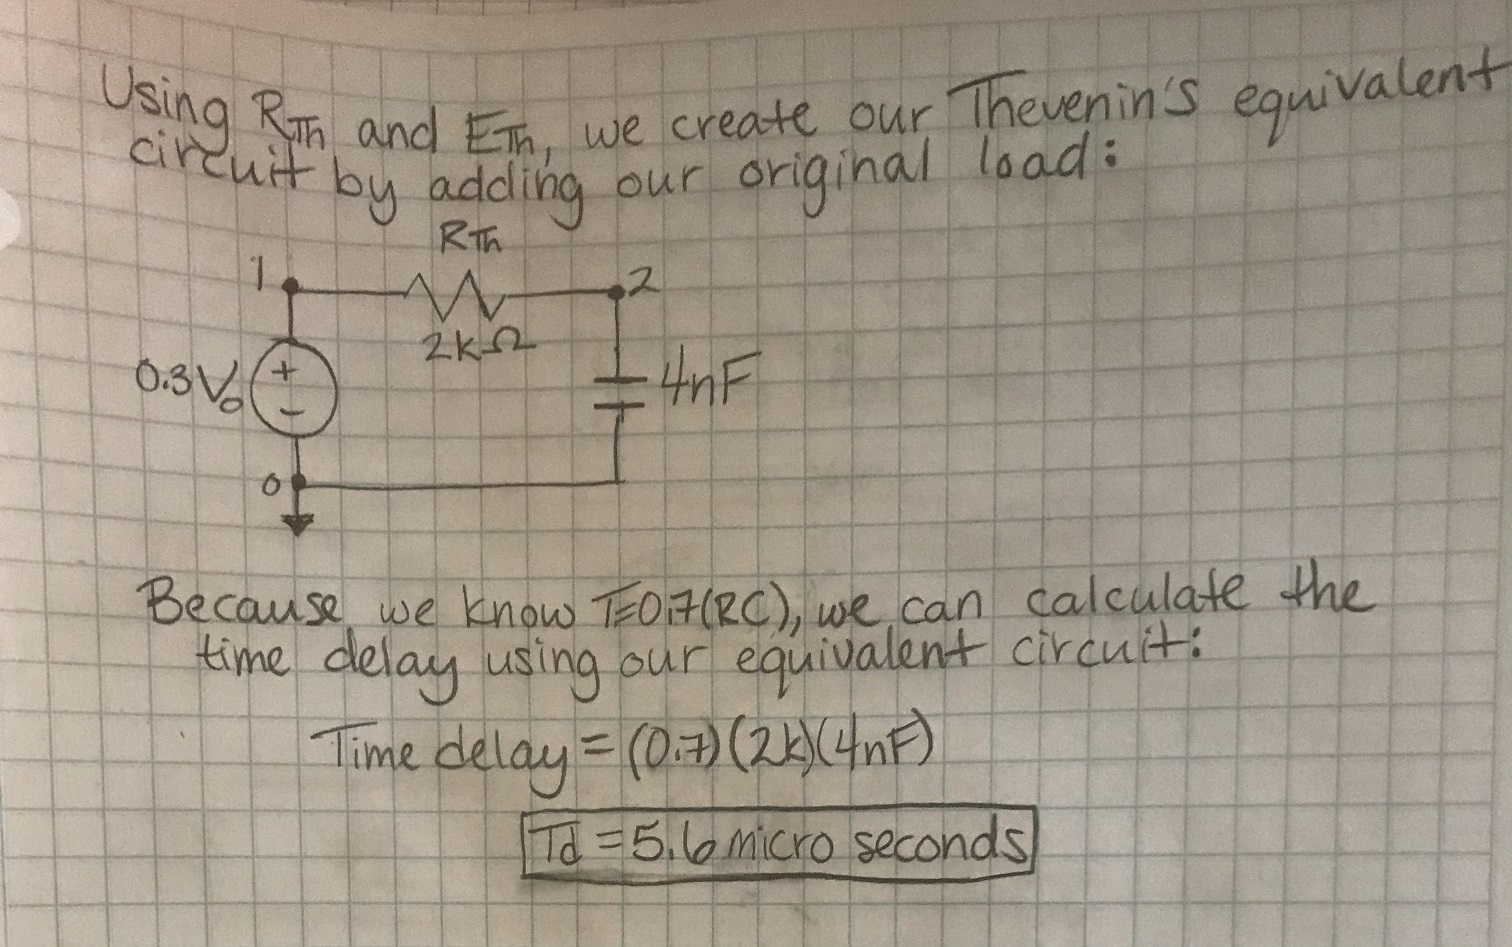 Using RTh and ETh, we create our Thevenin's equivalent
circuit by adding our original load:
RTh
1
2
2kΩ
0.3Vo
+
−
4nF
0
Because we know T=0.7(RC), we can calculate the
time delay using our equivalent circuit:
Time delay = (0.7)(2k)(4nF)
Td = 5.6 micro seconds